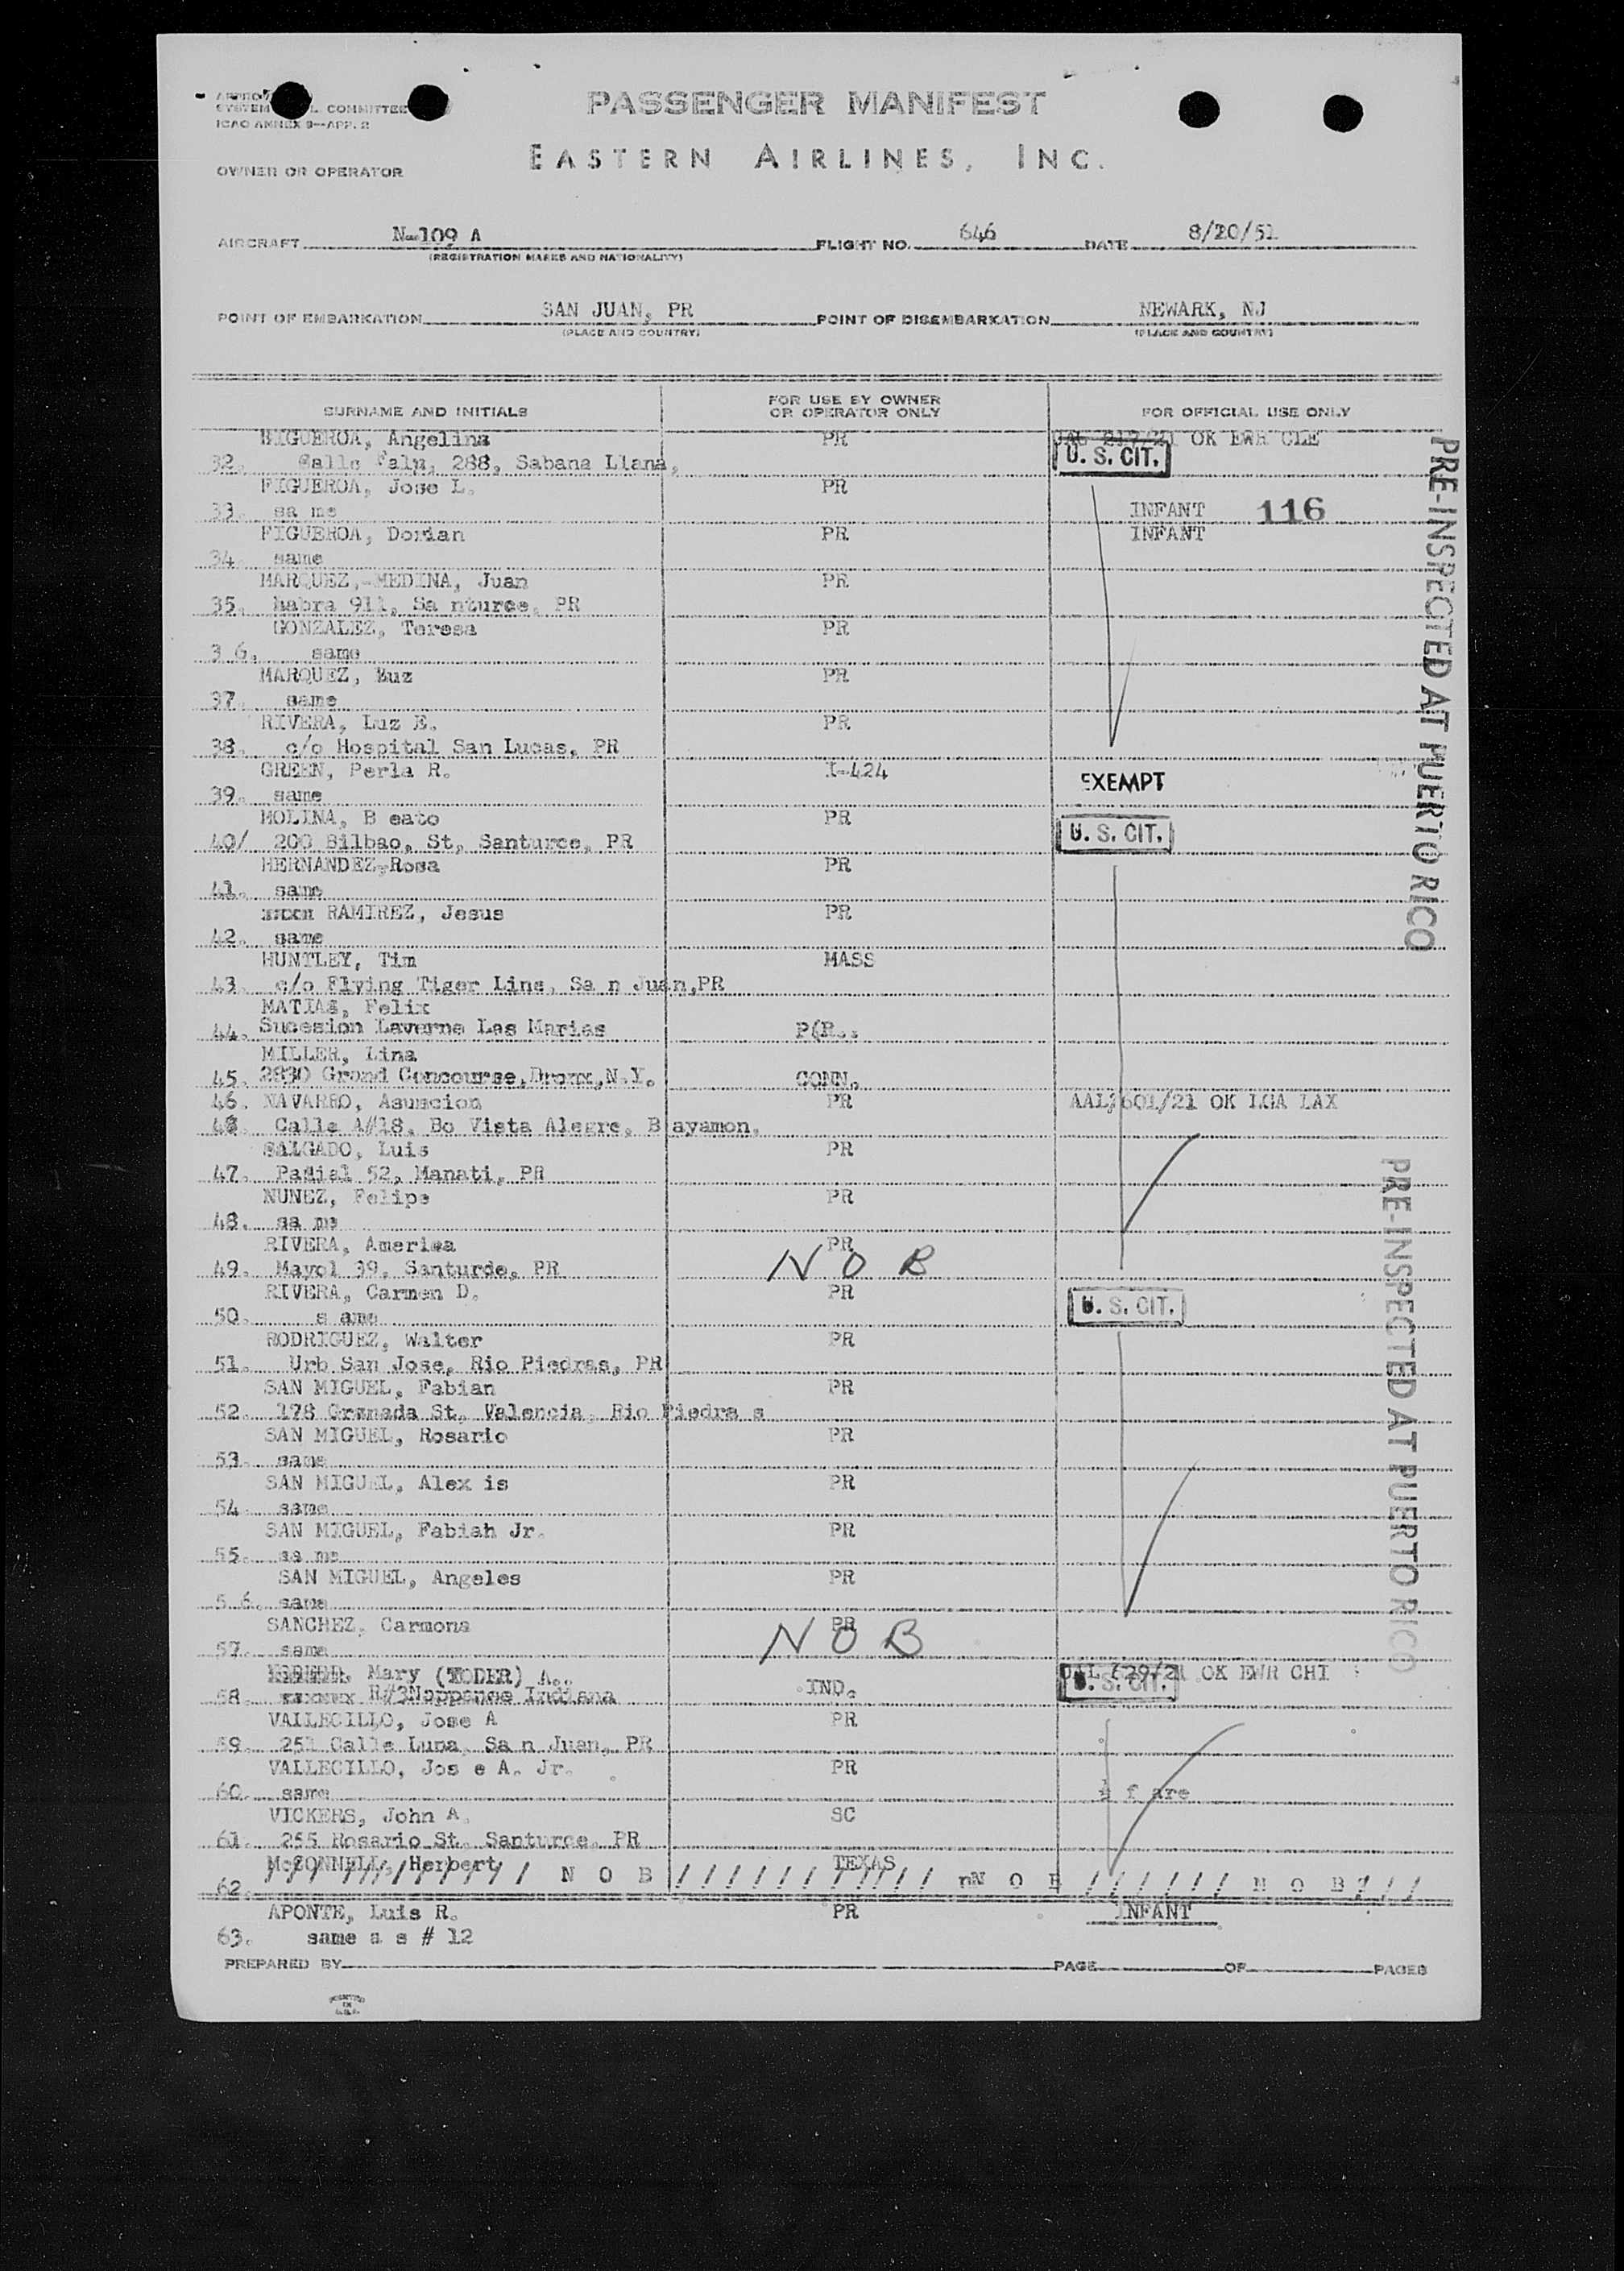 SYSTEM COMMITTEE
ICAO ANNEX 9--APP. 2
PASSENGER MANIFEST
EASTERN AIRLINES, INC.
OWNER OR OPERATOR
AIRCRAFT N-109 A FLIGHT NO. 646 DATE 8/20/51
(REGISTRATION MARKS AND NATIONALITY)
POINT OF EMBARKATION SAN JUAN, PR POINT OF DISEMBARKATION NEWARK, NJ
(PLACE AND COUNTRY) (PLACE AND COUNTRY)
SURNAME AND INITIALS FOR USE BY OWNER OR OPERATOR ONLY FOR OFFICIAL USE ONLY
Angelina PR OK EWR CLE
32. 288, Sabana Llana, U. S. CIT.
FIGUEROA, Jose L. PR
33. sa me INFANT 116
FIGUEROA, Dorian PR INFANT
34. same
MARQUEZ,-MEDINA, Juan PR
35. habra 911, Sa nturce, PR
GONZALEZ, Teresa PR
3 6. same
MARQUEZ, PR
37. same
RIVERA, Luz E. PR
38. c/o Hospital San Lucas, PR
GREEN, Perla R. I-424
39. same EXEMPT
MOLINA, B eato PR
40/ 200 Bilbao, St, Santurce, PR U. S. CIT.
HERNANDEZ, Rosa PR
41. same
RAMIREZ, Jesus PR
42. same
HUNTLEY, Tim MASS
43. c/o Flying Tiger Line, Sa n Juan,PR
MATIAS, Felix
44. Sucesion Laverne Las Marias P(R.:
MILLER, Lina
45. 2830 Grand Concourse,Bronx,N.Y. CONN.
46. NAVARRO, Asuncion PR AAL 601/21 OK LGA LAX
Calle A#18, Bo Vista Alegre, B ayamon.
SALGADO, Luis PR
47. Padial 52, Manati, PR
NUNEZ, Felipe PR
48. sa me
RIVERA, America PR
49. Mayol 39, Santurde, PR N O B
RIVERA, Carmen D. PR
50. s ame U. S. CIT.
RODRIGUEZ, Walter PR
51. Urb San Jose, Rio Piedras, PR
SAN MIGUEL, Fabian PR
52. 178 Granada St, Valencia, Rio Piedra s
SAN MIGUEL, Rosario PR
53. same
SAN MIGUEL, Alex is PR
54. same
SAN MIGUEL, Fabiah Jr. PR
55. sa me
SAN MIGUEL, Angeles PR
5 6. same
SANCHEZ, Carmona PR
57. same N O B
Mary (YODER) A.. OK EWR CHI
58. R#3Nappanee Indiana IND. U. S. CIT.
VALLECILLO, Jose A PR
59. 251 Calle Luna, Sa n Juan, PR
VALLECILLO, Jos e A. Jr. PR
60. same ½ f are
VICKERS, John A. SC
61. 255 Rosario St. Santurce, PR
McCONNELL, Herbert TEXAS
62. N O B nN O B N O B
APONTE, Luis R. PR INFANT
63. same a s # 12
PREPARED BY PAGE OF PAGES
PRINTED IN U.S.A.
PRE-INSPECTED AT PUERTO RICO
PRE-INSPECTED AT PUERTO RICO